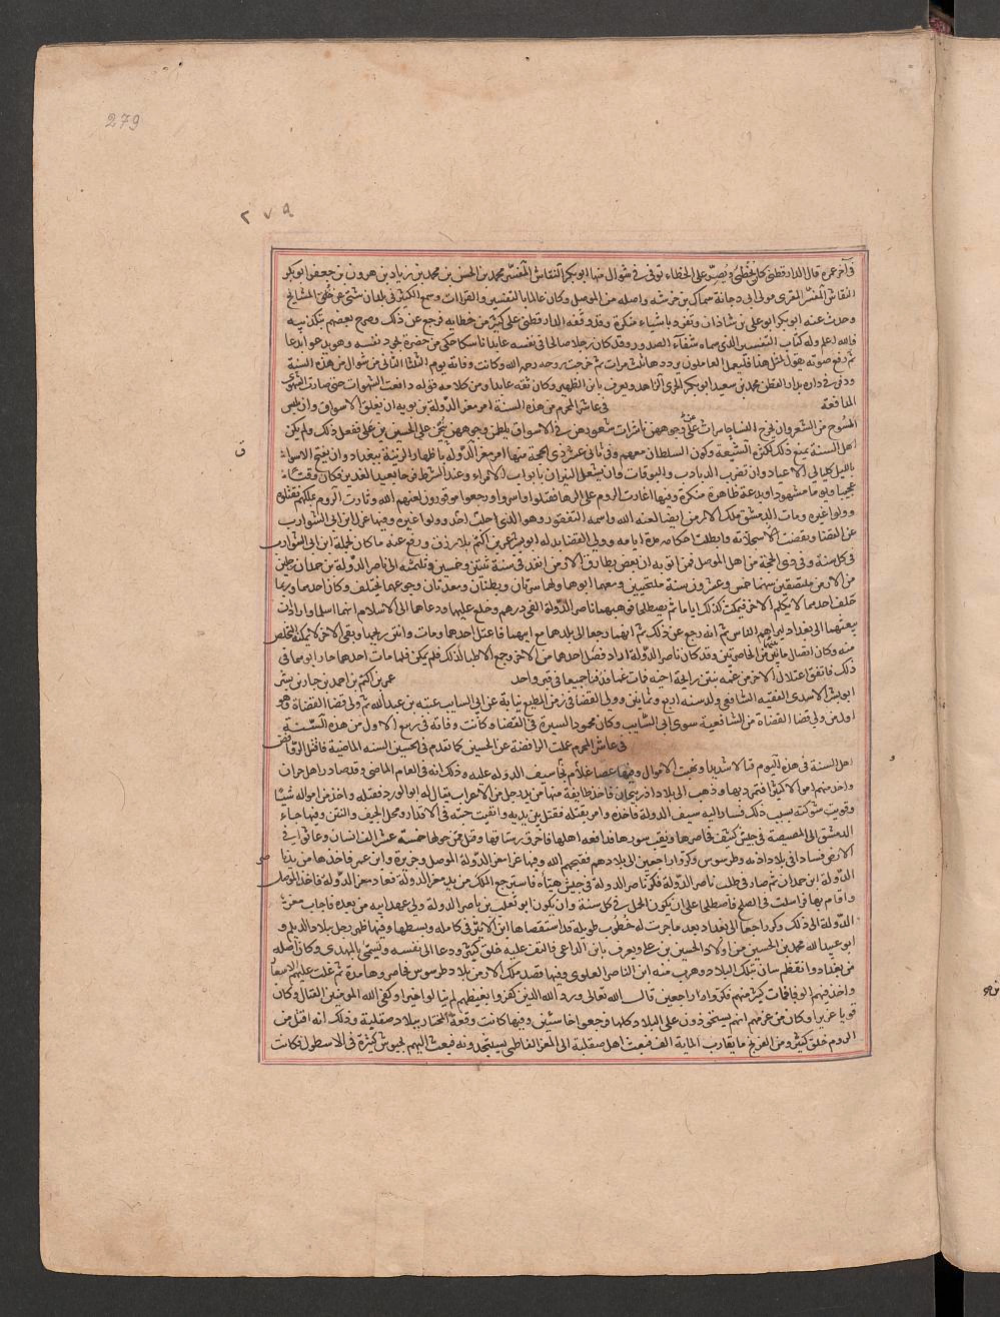 279
٢٧٩
في آخر عمره قال الدارقطني كان يخطئ ويصر على الخطاء توفي في شوال منها ابو بكر النقاش المفسر محمد بن الحسن بن محمد بن زياد بن هرون بن جعفر ابو بكر
النقاش المفسر المقرئ مولى ابي دجانة سماك بن خرشه واصله من الموصل وكان عالما بالتفسير والقراات وسمع الكثير في بلدان شتى عن خلق المشايخ
وحدث عنه ابو بكر ابو علي بن شاذان وتفرد باشياء منكرة وقد وقفه الدارقطني على كثير من خطايه فرجع عن ذلك وصرح بعضهم بتكذيبه
فالله اعلم وله كتاب التفسير الذي سماه شفآء الصدور وقد كان رجلا صالحا في نفسه عابدا ناسكا حكى من حضره يجود نفسه وهو يدعو بدعا
ثم رفع صوته يقول لمثل هذا فليعمل العاملون يرددها ثلث مرات ثم خرجت روحه رحمه الله وكانت وفاته يوم الثلثا الثاني من شوال من هذه السنة
ودفن في داره بدار القطن محمد بن سعيد ابو بكر الحربي الزاهد ويعرف بابن الضرير وكان ثقه عابدا ومن كلامه قوله دافعت الشهوات حتى صارت شهوتي
المدافعة في عاشر المحرم من هذه السنة امر معز الدولة بن بويه ان يغلق الاسواق وان يلبس
المسوح من الشعر وان يخرج النسا حاسرات عن وجوههن ناشرات شعورهن في الاسواق يلطمن وجوههن ينحن على الحسين بن علي ففعل ذلك ولم يكن
اهل السنة بمنع ذلك لكثرة الشيعة وكون السلطان معهم وفي ثاني عشر ذي الحجة منها امر معز الدولة باظهار الزينة ببغداد وان يفتح الاسواق
بالليل كليالي الاعياد وان تضرب الدبادب والبوقات وان يشعل النيران بابواب الامراء وعند الشرط فرحا بعيد الغدير فكان وقتا
عجيبا ويوما مشهودا وبدعة ظاهرة منكرة وفيها اغارت الروم على الرها فقتلوا واسروا ورجعوا موقورون لعنهم الله وثارت الروم بملكهم فقتلوه
وولوا غيره ومات الدمستق ملك الارمن ايضا لعنه الله واسمه النقفور وهو الذي اخذت حلب وولوا غيره وفيها عزل ابن ابي الشوارب
عن القضا ونقضت الاسجلاته وابطلت احكامه مدة ايامه وولي القضا بدله ابو بشر عمر بن اكثم بلا رزق ورفع عنه ما كان يحمله ابن ابي الشوارب
في كل سنة وفي ذي الحجة من اهل الموصل فمن اثق به ان بعض بطارق الارمن انفد في سنة ثنتين وخمسين وثلثمئه الى ناصر الدولة بن حمدان رجلين
من الارمن ملتصقين سنهما خمس وعشرون سنة ملتحيين ومعهما ابوهما ولهما سرتان وبطنان ومعدتان وجوعهما مختلف وكان احدهما وربما
حلف احدهما لا يكلم الاخر فيمكث كذلك اياما ثم يصطلحا فوهبهما ناصر الدولة الفي درهم وخلع عليهما ودعاهما الى الاسلام انهما اسلما واراد ان
يبعثهما الى بغداد ليراهم الناس ثم انه رجع عن ذلك ثم انهما رجعا الى بلدهما مع ابيهما فاعتل احدهما ومات وانتن ريحه وبقي الاخر لا يمكنه التخلص
منه وكان اتصال ما بينهما من الخاصرتين وقد كان ناصر الدولة اراد فصل احدهما من الاخر وجمع الاطبا لذلك فلم يكن فلما مات احدهما حار ابوهما في
ذلك فاتفق اعتلال الاخر من غمه بنتن رايحة اخيه فمات غما فدفنا جميعا في قبر واحد عمر بن اكثم بن احمد بن حيان بن بشر
ابو بشر الاسدي الفقيه الشافعي ولد سنه اربع وثمانين وولي القضا في زمن المطيع نيابة عن ابي السايب عتبه بن عبد الله ثم ولي قضا القضاة وهو
اول من ولي قضا القضاة من الشافعية سوى ابي السايب وكان محمود السيرة في القضا وكانت وفاته في ربيع الاول من هذه السنة
في عاشر المحرم عملت الرافضة عزا الحسين كما تقدم في الحسين السنه الماضية فاقتتل الروافض
اهل السنة في هذه اليوم قتالا شديدا ونهبت الاموال وفيها عصا غلام لسيف الدوله عليه وذلك انه في العام الماضي وقد صادر اهل حران
واخذ منهم اموالا كثيرة فتمرد بها وذهب الى بلاد اذربيجان فاخذ طايفة منها من يد رجل من الاعراب يقال له ابو الورد فقتله واخذ من امواله شيئا
وقويت شوكته بسبب ذلك فسار اليه سيف الدولة فاخذه وامر بقتله فقتل بين يديه والقيت جثته في الاقذار ومحل الجيف والنتن وفيها جاء
الدمشق الى المصيصة في جيش كثيف فحاصرها ونقب سورها فدافعه اهلها فاحرق رستاقها وقتل ممن حولها خمسة عشر الف انسان وعاثوا في
الارض فسادا في بلاد اذنه وطرسوس وكروا راجعين الى بلادهم فقبحهم الله وفيها غزا معز الدولة الموصل وجزيرة وابن عمر فاخذها من يد ناصر
الدولة ابن حمدان ثم صار في طلب ناصر الدولة فكر ناصر الدولة في جيش هيئاه فاسترجع الملك من يد معز الدولة فعاد معز الدولة فاخذ الموصل
واقام بها فراسلت في الصلح فاصطلحا على ان يكون الحمل في كل سنة وان يكون ابو تغلب بن ناصر الدولة ولي عهد ابيه من بعده فاجاب معز
الدولة الى ذلك وكر راجعا الى بغداد بعد ما جرت له خطوب طويلة قد استقصاها ابن الاثير في كامله وبسطها وفيها ظهر رجل ببلاد الديلم و
ابو عبد الله محمد بن الحسين من اولاد الحسين بن علي ويعرف بابن الداعي فالتف عليه خلق كثير ودعا الى نفسه وتسمى بالمهدي وكان اصله
من بغداد وانقظم شان بتلك البلاد وهرب منه ابن الناصر العلوي وفيها قصد ملك الارمن بلاد طرسوس فحاصروها مدة ثم غلت عليهم الاسعار
واخذ فيهم الوفا فمات كثير منهم فكروا راجعين قال الله تعالى ورد الله الذين كفروا بغيظهم لم ينالوا خيرا وكفى الله المومنين القتال وكان
قويا عزيزا وكان من عزمهم انهم يستحوذون على البلاد وكلها فرجعوا خاسئين وفيها كانت وقعة المختار ببلاد صقلية وذلك انه اقبل من
الروم خلق كثير ومن الفرنج ما يقارب المائة الف فبعث اهل صقلية الى المعز الفاطمي يستنجدونه فبعث اليهم بجيوش كثيرة في الاسطول فكانت